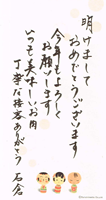 明けまして
おめでとうございます
今年もよろしく
お願いします
いつも美味しいお肉
丁寧な接客ありがとう
石倉